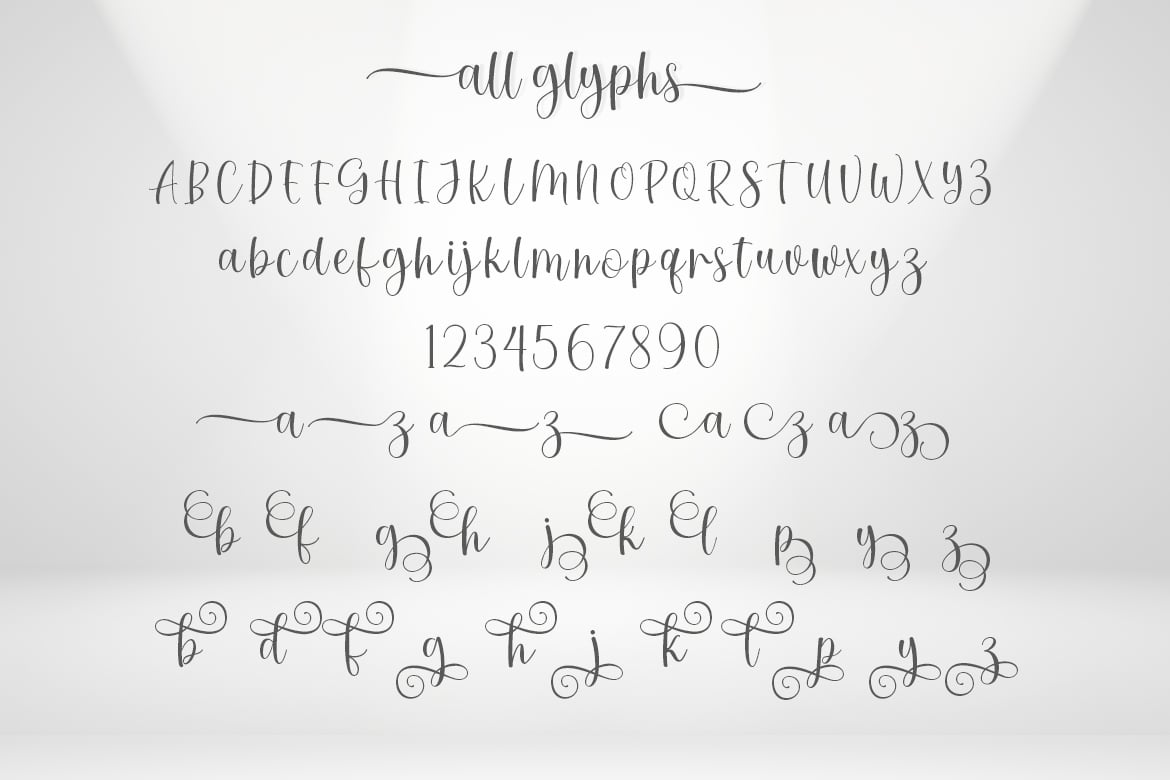 all glyphs
ABCDEFGHIJKLMNOPQRSTUVWXYZ
abcdefghijklmnopqrstuvwxyz
1234567890
a z a z a z a z
b f g h j k l p y z
b d f g h j k l p y z